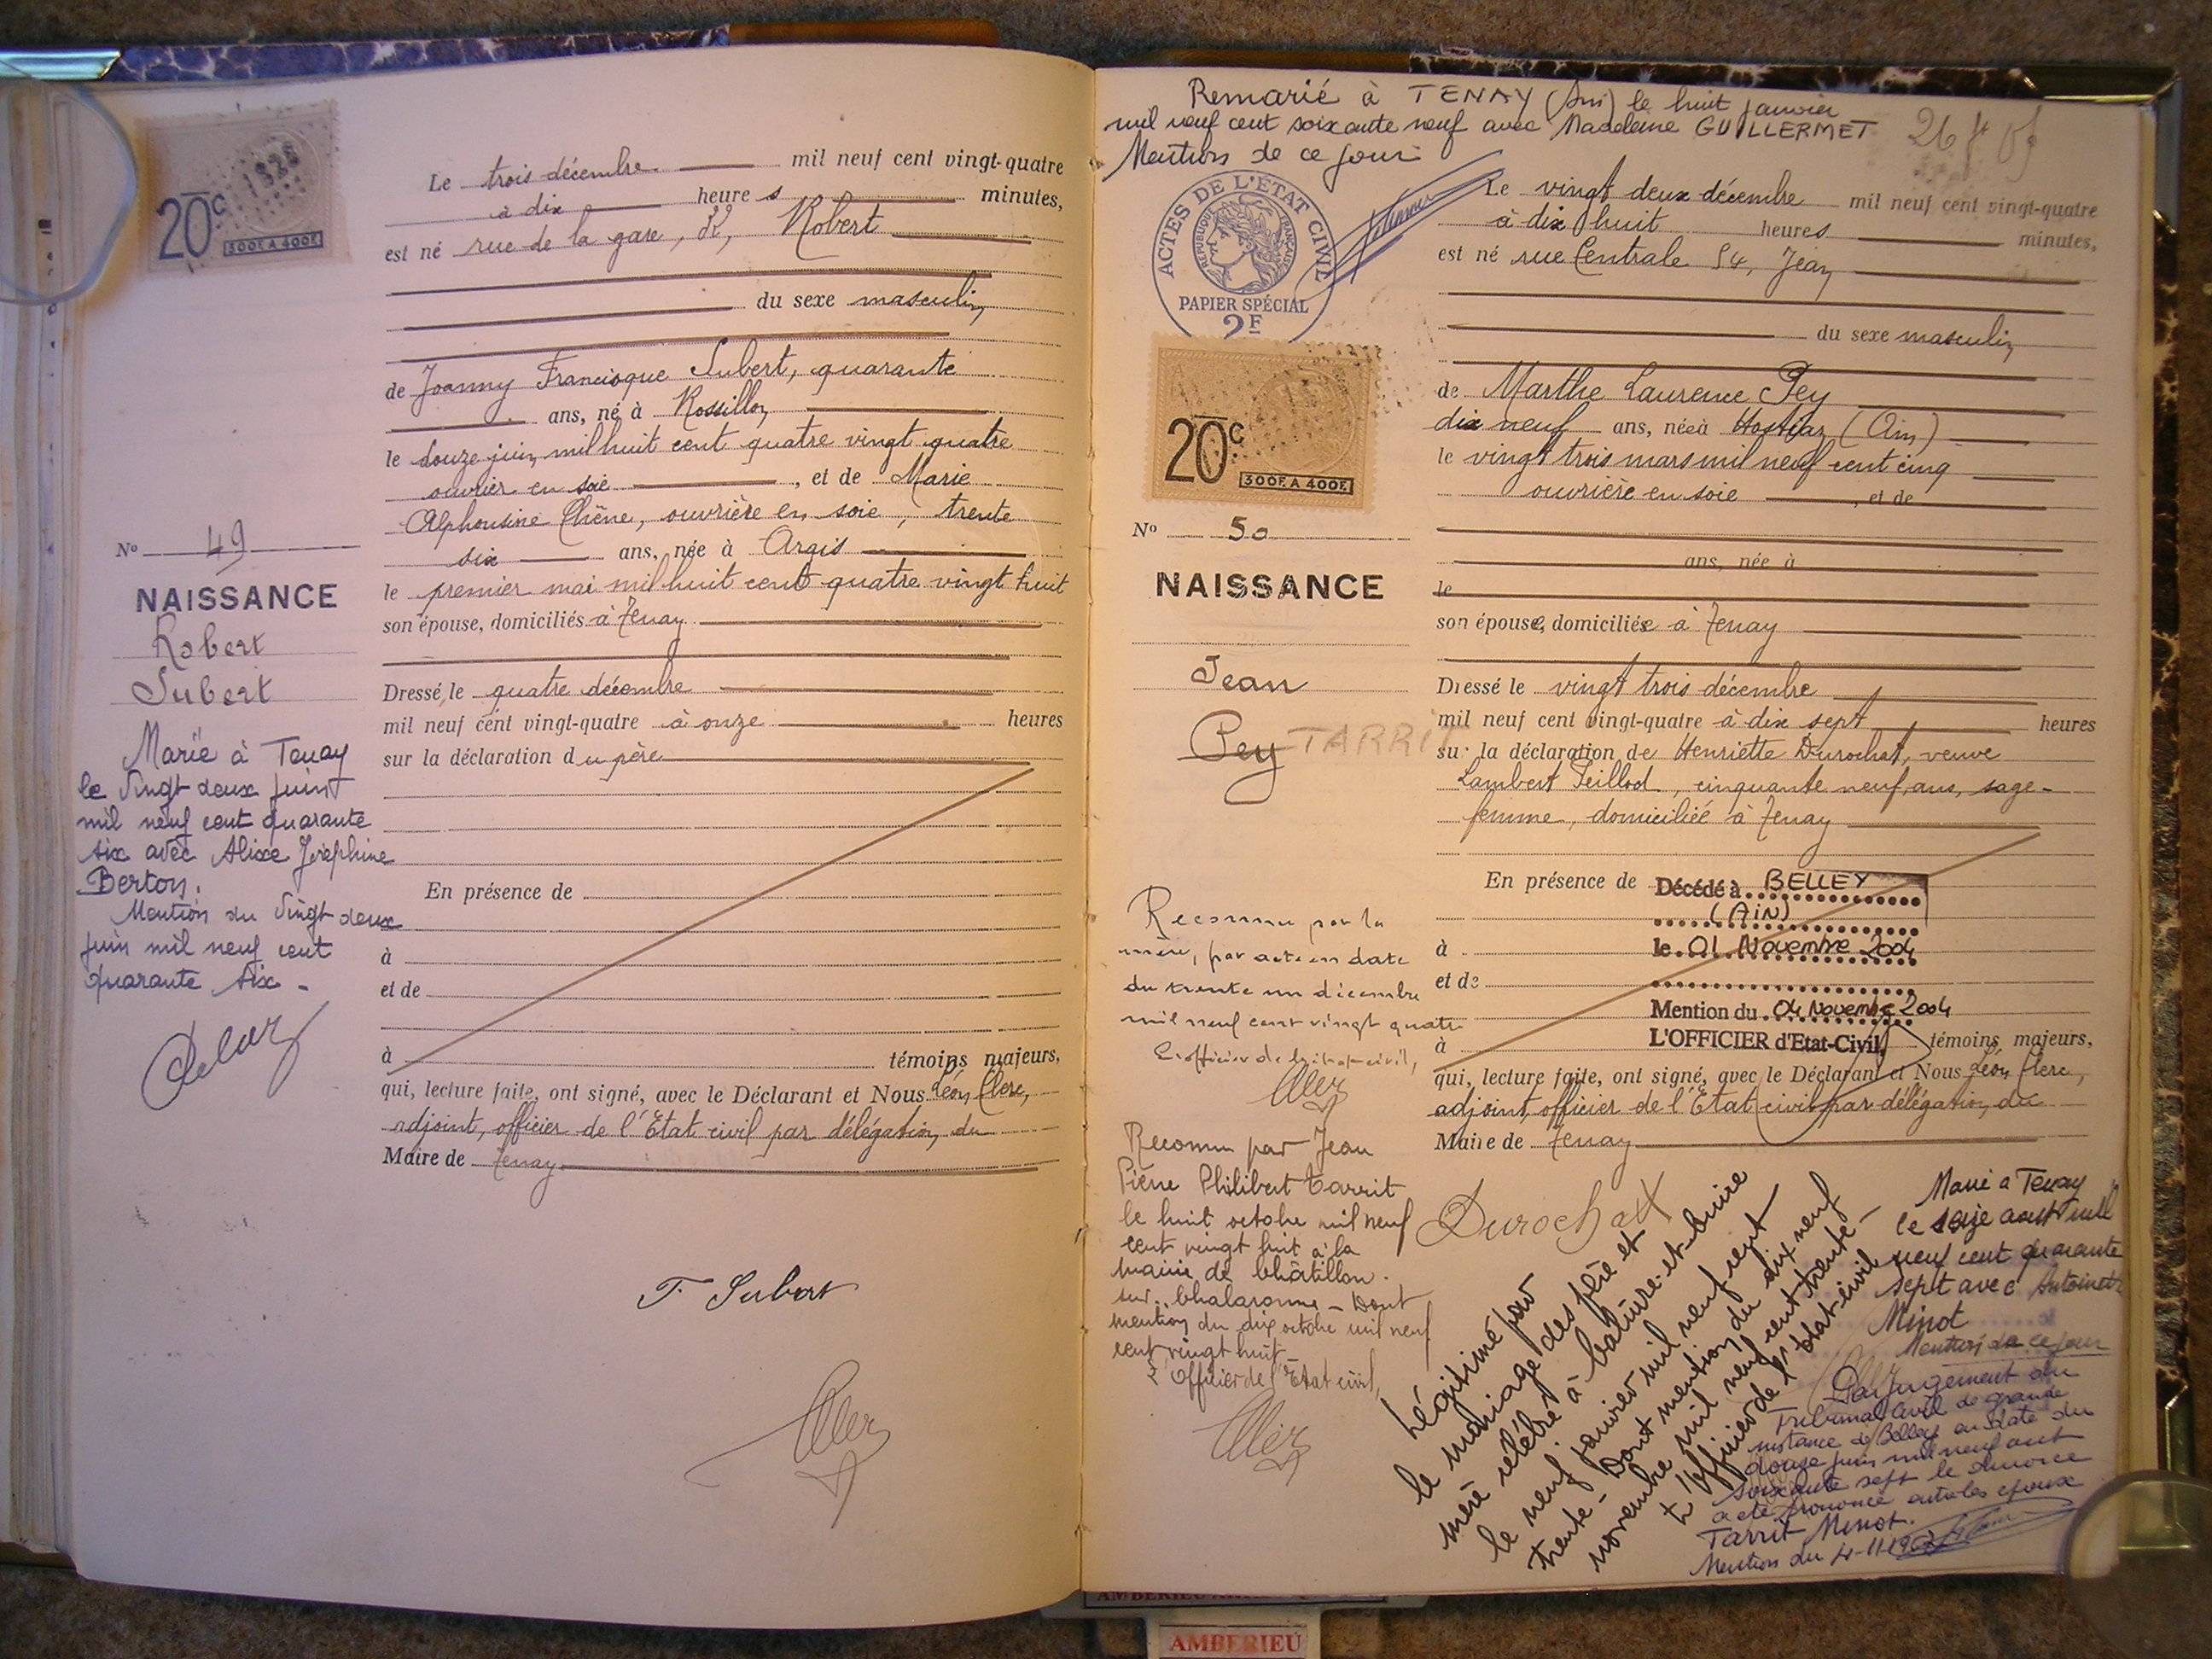 20c
1925
300F. A 400F.
No 49
NAISSANCE
Robert
Subert
Marié à Tenay
le vingt deux juin
mil neuf cent quarante
six avec Alixe Joséphine
Berton.
Mention du vingt deux
juin mil neuf cent
quarante six -
Le trois décembre mil neuf cent vingt-quatre
à dix heures minutes,
est né rue de la gare, Robert
du sexe masculin
de Joanny Francisque Subert, quarante
ans, né à Rossillon
le douze juin mil huit cent quatre vingt quatre
ouvrier en soie, et de Marie
Alphonsine Chêne, ouvrière en soie, trente
six ans, née à Argis
le premier mai mil huit cent quatre vingt huit
son épouse, domiciliés à Tenay
Dressé le quatre décembre
mil neuf cent vingt-quatre à onze heures
sur la déclaration du père
En présence de
à
et de
à témoins majeurs,
qui, lecture faite, ont signé, avec le Déclarant et Nous Léon Clerc,
adjoint, officier de l'Etat civil par délégation du
Maire de Tenay
F. Subert
Remarié à TENAY (Ain) le huit janvier
mil neuf cent soixante neuf avec Madeleine GUILLERMET
Mention de ce jour
ACTES DE L'ÉTAT CIVIL
RÉPUBLIQUE FRANÇAISE
PAPIER SPÉCIAL
2F
20c
300F. A 400F.
No 50
NAISSANCE
Jean
Pey TARRIT
Reconnu par la
mère, par acte en date
du trente un décembre
mil neuf cent vingt quatre
L'officier de l'état-civil,
Reconnu par Jean
Pierre Philibert Tarrit
le huit octobre mil neuf
cent vingt huit à la
mairie de Châtillon-
sur-Chalaronne - Dont
mention du dix octobre mil neuf
cent vingt huit
L'Officier de l'Etat civil,
Le vingt deux décembre mil neuf cent vingt-quatre
à dix huit heures minutes,
est né rue Centrale 54, Jean
du sexe masculin
de Marthe Laurence Pey
dix neuf ans, née à Hostiaz (Ain)
le vingt trois mars mil neuf cent cinq
ouvrière en soie, et de
ans, née à
le
son épouse, domiciliée à Tenay
Dressé le vingt trois décembre
mil neuf cent vingt-quatre à dix sept heures
sur la déclaration de Henriette Durochat, veuve
Lambert Teillod, cinquante neuf ans, sage-
femme, domiciliée à Tenay
En présence de
à
et de
à témoins majeurs,
Décédé à BELLEY
(AIN)
le 01 Novembre 2004
Mention du 04 Novembre 2004
L'OFFICIER d'Etat-Civil
qui, lecture faite, ont signé, avec le Déclarant et Nous Léon Clerc,
adjoint, officier de l'Etat civil par délégation du
Maire de Tenay
Durochat
Légitimé par
le mariage des père et
mère célébré à
le neuf janvier mil neuf cent
trente - Dont mention du dix neuf
novembre mil neuf cent trente -
L'Officier de l'état civil
Marié à Tenay
le seize août mil
neuf cent quarante
sept avec Antoinette
Minot
Mention de ce jour
Par jugement du
Tribunal civil de grande
instance de Belley en date du
douze juin mil neuf cent
soixante sept le divorce
a été prononcé entre les époux
Tarrit Minot.
Mention du 4-11-19
AMBERIEU